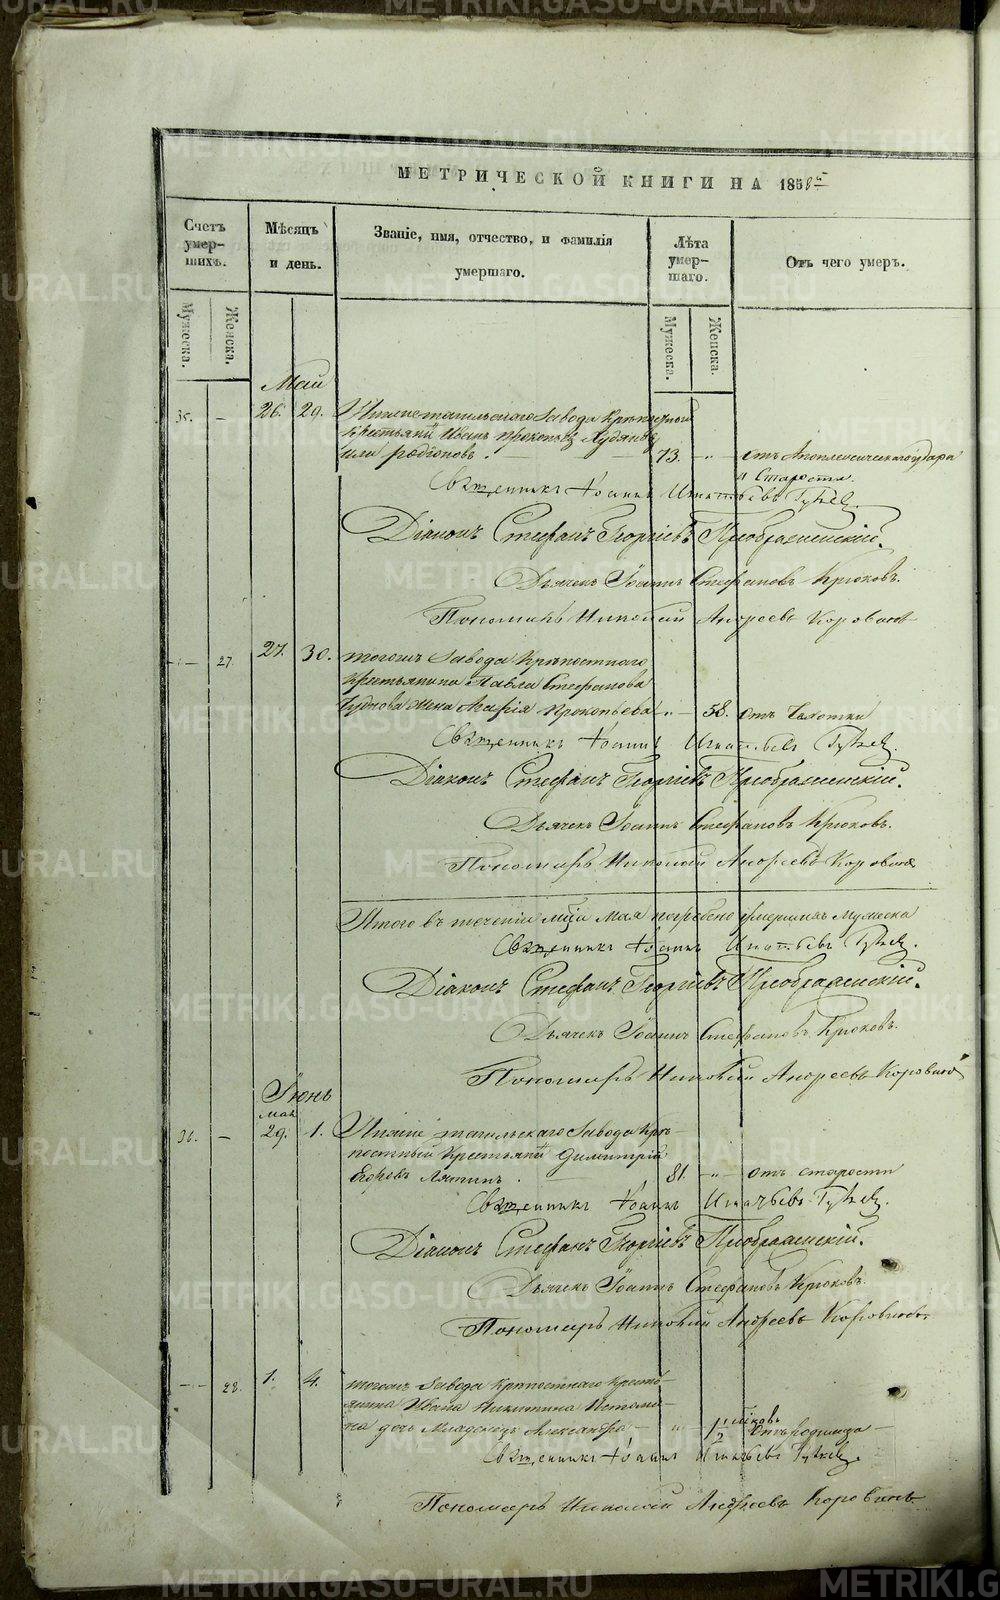 МЕТРИЧЕСКОЙ КНИГИ НА 1858й
Счетъ умерших.
Мѣсяцъ и день.
Званіе, имя, отчество, и фамилія умершаго.
Лѣта умершаго.
Отъ чего умеръ.
Мужеска.
Женска.
Мужеска.
Женска.
Май
35. — 26. 29. Нижнетагильскаго Завода Крѣпостный
Крестьянинъ Иванъ Прокопьевъ
или Родіоновъ. 73. — отъ Апоплексическаго удара
и Старости.
Священникъ Іоаннъ Игнатьевъ
Діаконъ Стефанъ Георгіевъ Преображенскій.
Дьячекъ Іоаннъ Стефановъ Крюковъ.
Пономарь Николай Андреевъ Коровинъ
— 27. 27. 30. тогожъ Завода Крѣпостнаго
Крестьянина Павла Стефанова
жена Агафія Прокопьева — 58. отъ Чахотки
Священникъ Іоаннъ Игнатьевъ
Діаконъ Стефанъ Георгіевъ Преображенскій.
Дьячекъ Іоаннъ Стефановъ Крюковъ.
Пономарь Николай Андреевъ Коровинъ
Итого въ теченіи мца мая погребено умершихъ Мужеска
Священникъ Іоаннъ Игнатьевъ
Діаконъ Стефанъ Георгіевъ Преображенскій.
Дьячекъ Іоаннъ Стефановъ Крюковъ.
Пономарь Николай Андреевъ Коровинъ
Іюнь
мая
36. — 29. 1. Нижне тагильскаго Завода Крѣ-
постный Крестьянинъ Димитрій
Егоровъ Ляпинъ. 81. — отъ старости
Священникъ Іоаннъ Игнатьевъ
Діаконъ Стефанъ Георгіевъ Преображенскій.
Дьячекъ Іоаннъ Стефановъ Крюковъ.
Пономарь Николай Андреевъ Коровинъ.
— 28. 1. 4. тогожъ Завода Крѣпостнаго Кресть-
янина Ивана Никитина Истоми-
на дочь Младенецъ Александра — 1/2 отъ родимца
Священникъ Іоаннъ Игнатьевъ
Пономарь Николай Андреевъ Коровинъ
METRIKI.GASO-URAL.RU